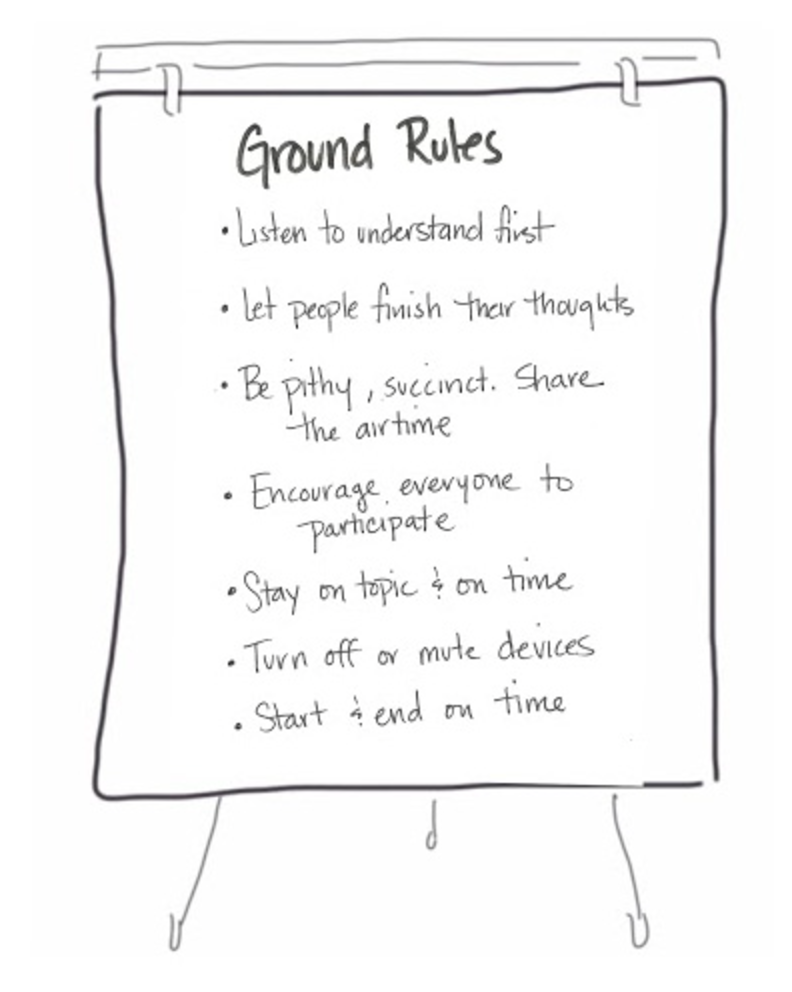 Ground Rules
• Listen to understand first
• Let people finish their thoughts
• Be pithy, succinct. Share
the airtime
• Encourage everyone to
participate
• Stay on topic & on time
• Turn off or mute devices
• Start & end on time